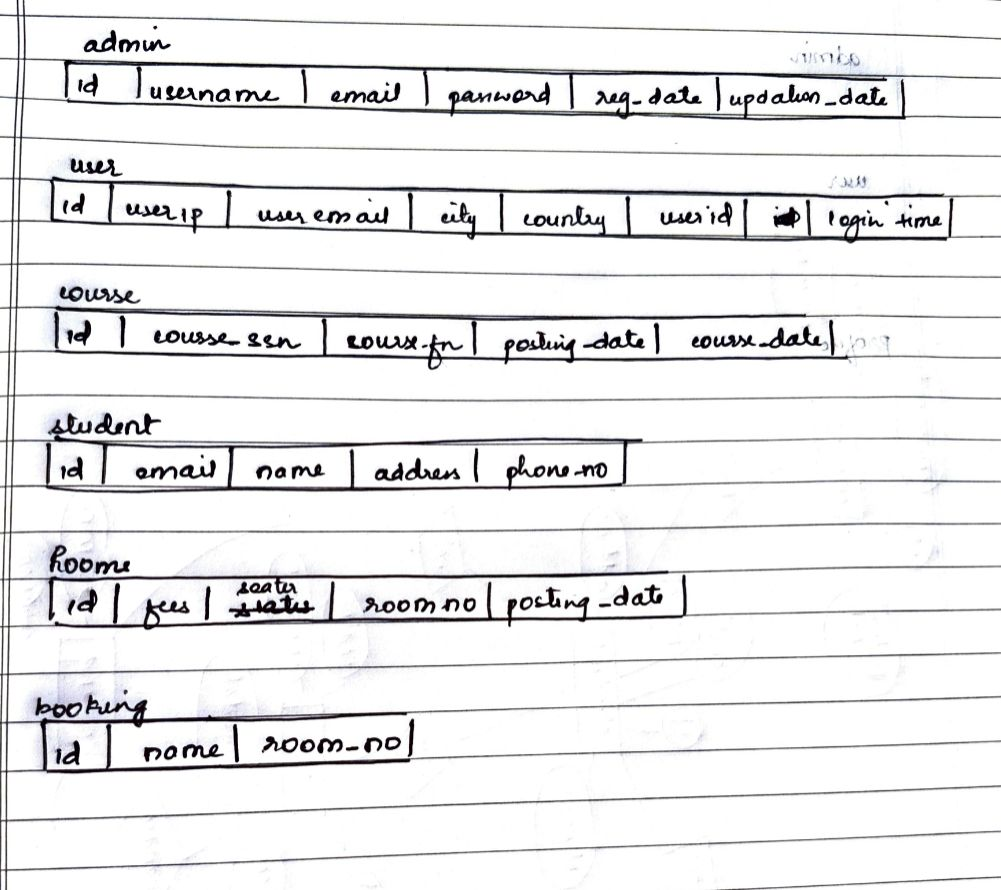 admin
id | username | email | password | reg_date | updation_date
user
id | userip | user email | city | country | userid | login time
course
id | course_sn | course_fn | posting_date | course_date
student
id | email | name | address | phone_no
Rooms
id | fees | seater | room no | posting_date
booking
id | name | room_no